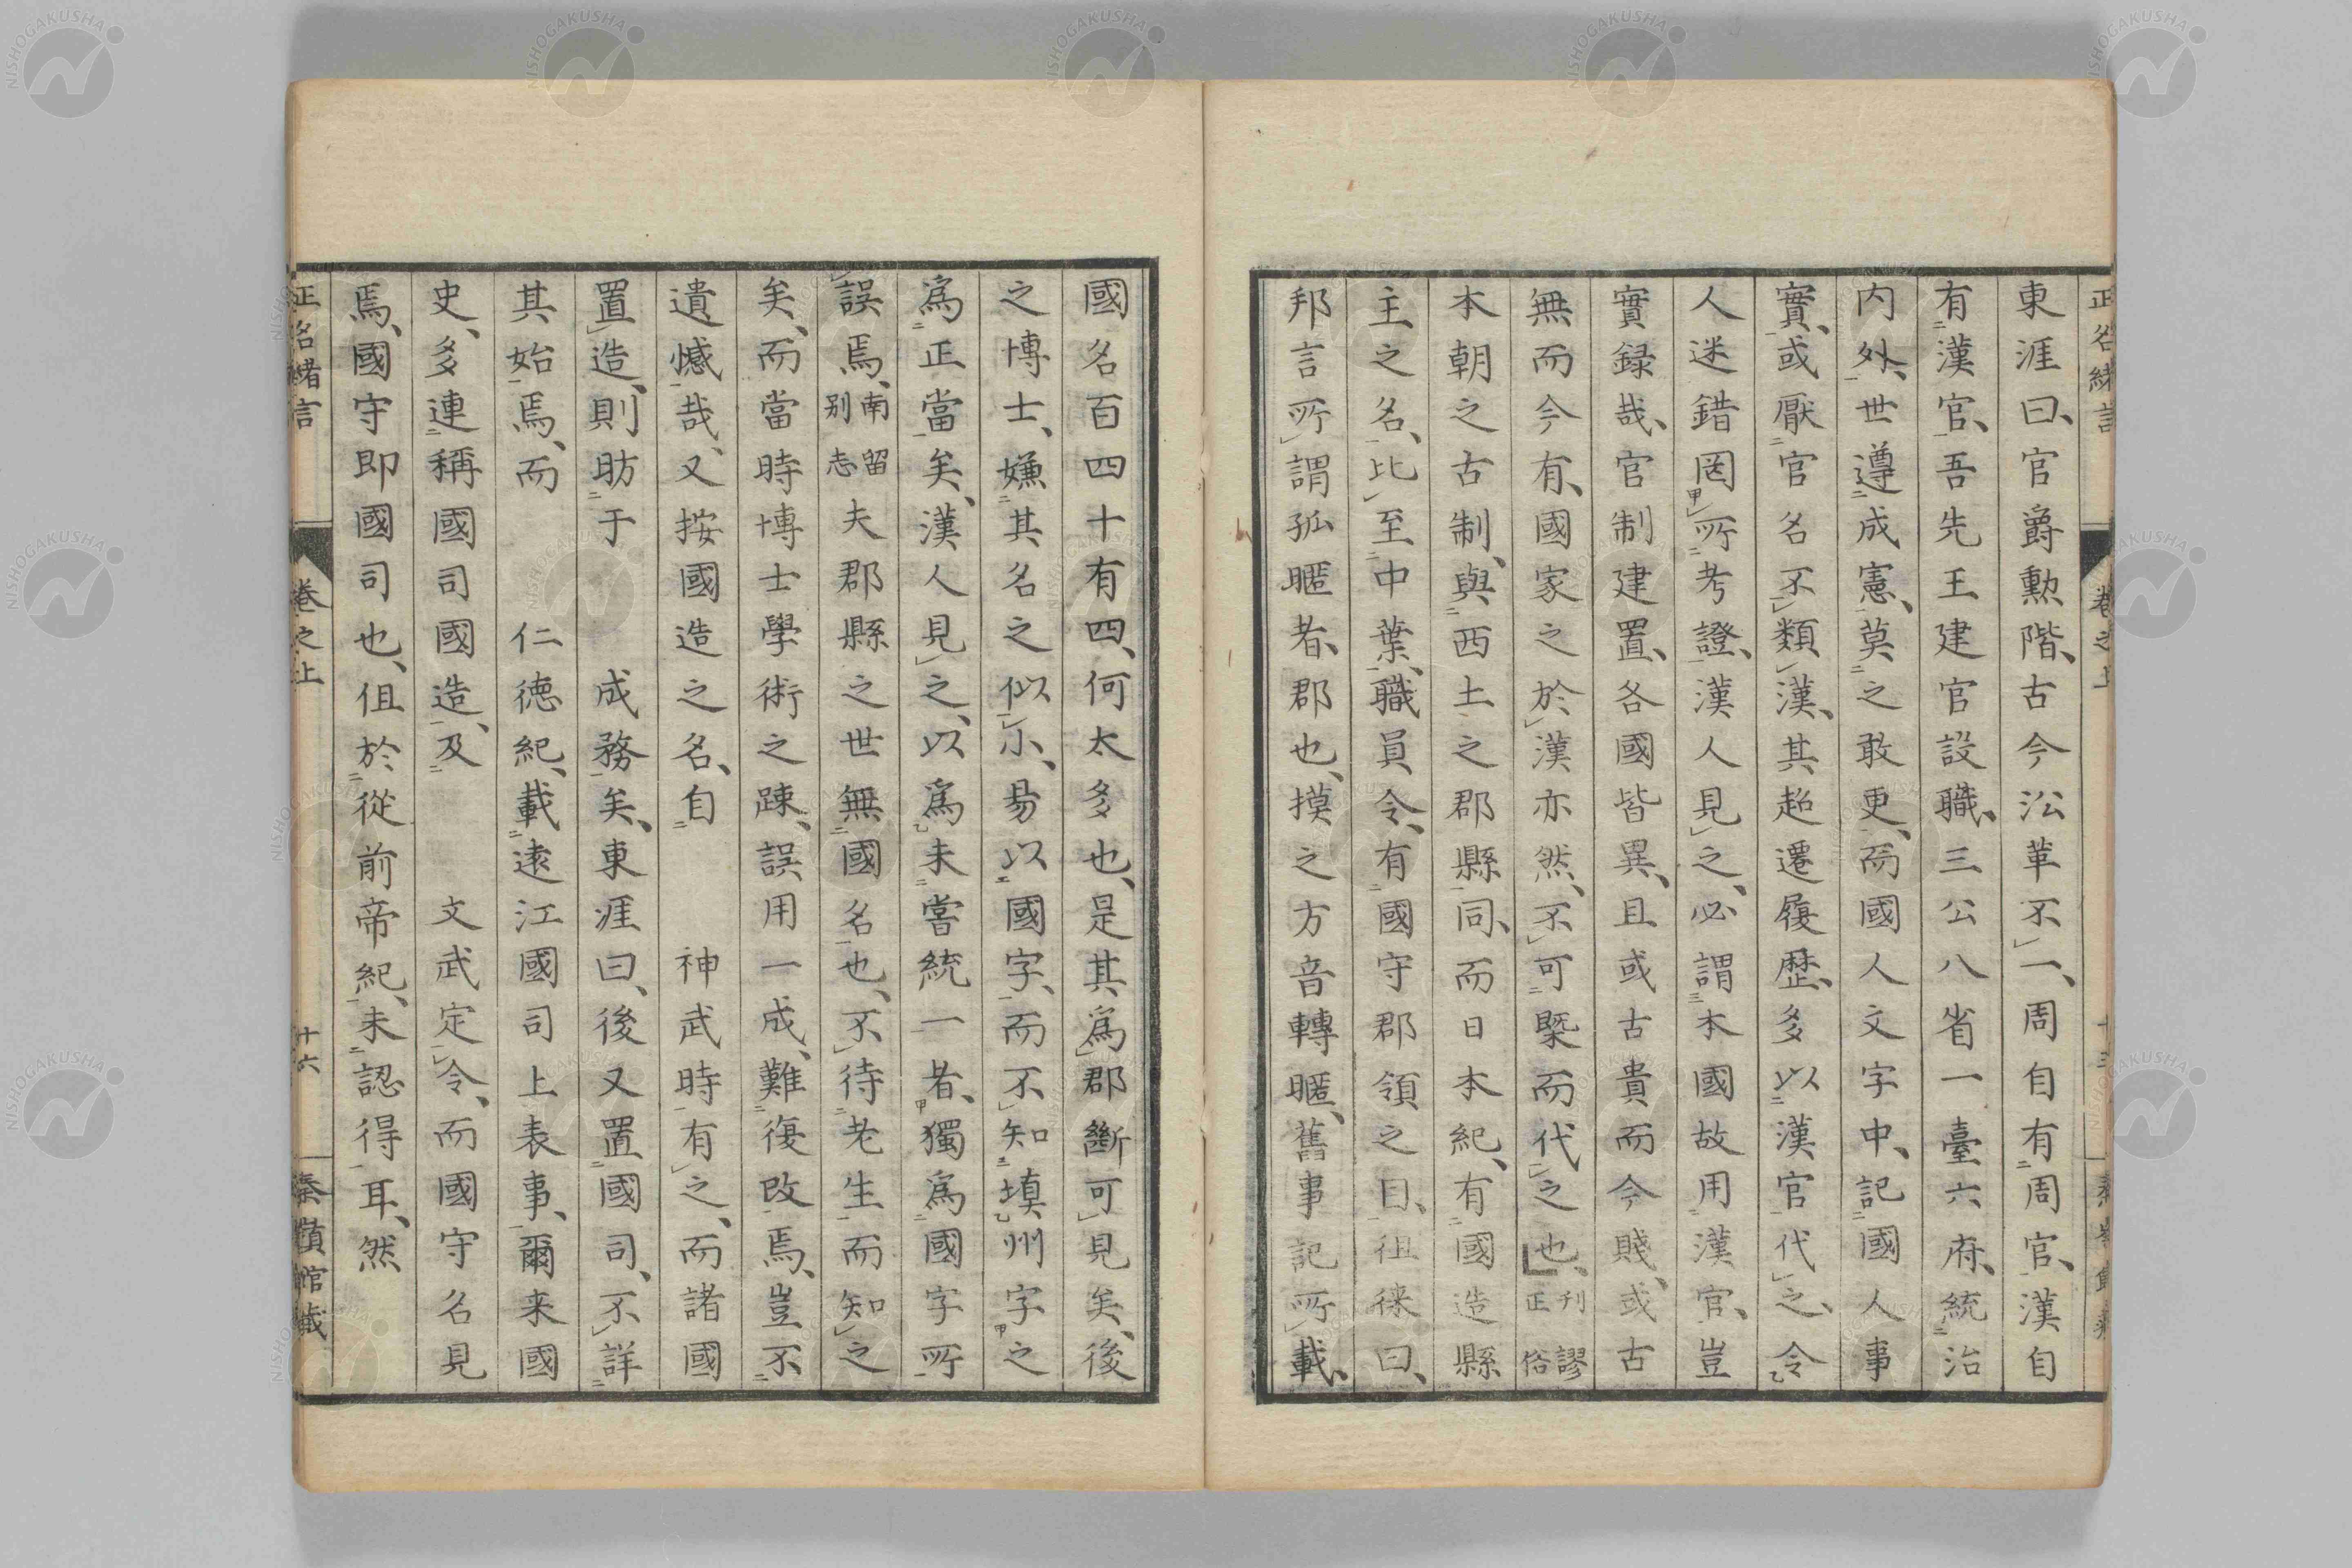 東涯曰、官爵勲階、古今㳂革不一、周自有周官、漢自
有漢官、吾先王建官設職、三公八省一臺六府、統治
内外、世遵成憲、莫之敢更、而國人文字中、記國人事
實、或厭官名不類漢、其超遷履歴、多以漢官代之、令
人迷錯罔所考證、漢人見之、必謂本國故用漢官、豈
實録哉、官制建置、各國皆異、且或古貴而今賤、或古
無而今有、國家之於漢亦然、不可槩而代之也、刊謬正俗
本朝之古制、與西土之郡縣同、而日本紀、有國造縣
主之名、比至中葉、職員令、有國守郡領之目、徂徠曰、
邦言所謂孤暱者、郡也、摸之方音轉暱、舊事記所載、
國名百四十有四、何太多也、是其爲郡斷可見矣、後
之博士、嫌其名之似小、易以國字、而不知塡州字之
爲正當矣、漢人見之、以爲未嘗統一者、獨爲國字所
誤焉、南留別志 夫郡縣之世無國名也、不待老生而知之
矣、而當時博士學術之踈、誤用一成、難復改焉、豈不
遺憾哉、又按國造之名、自 神武時有之、而諸國
置造、則昉于 成務矣、東涯曰、後又置國司、不詳
其始焉、而 仁徳紀、載遠江國司上表事、爾来國
史、多連稱國司國造、及 文武定令、而國守名見
焉、國守即國司也、但於從前帝紀、未認得耳、然
正名緒言 卷之上 十六